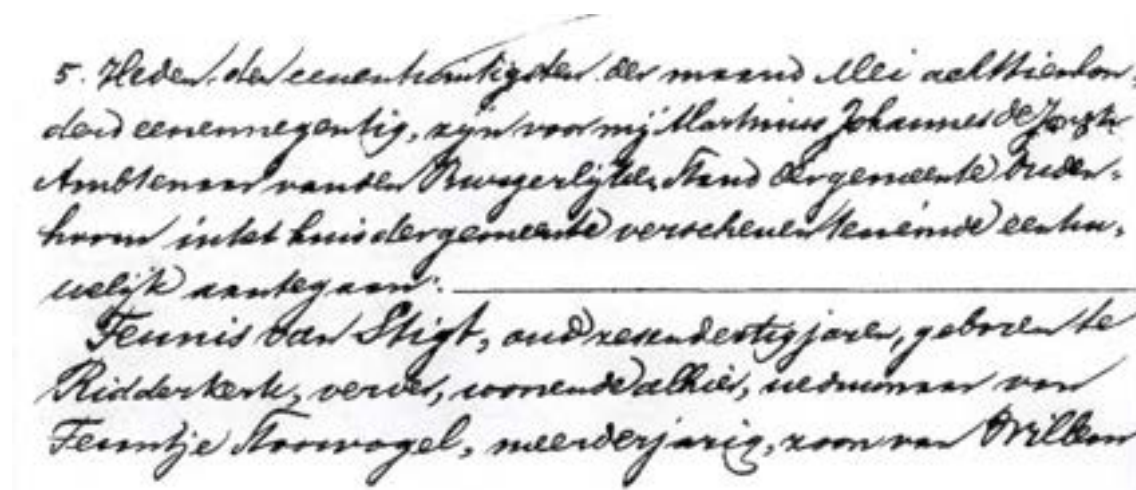 5. Heden den eenentwintigsten der maand Mei achttienhon-
derd eenennegentig, zijn voor mij Martinus Johannes de
Ambtenaar van den Burgerlijken Stand der gemeente Ouden-
hoorn in het huis der gemeente verschenen ten einde een hu-
welijk aan te gaan:
Teunis van Stigt, oud zesendertig jaren, geboren te
Ridderkerk, verver, wonende alhier, weduwnaar van
Teuntje Stoorvogel, meerderjarig, zoon van Willem